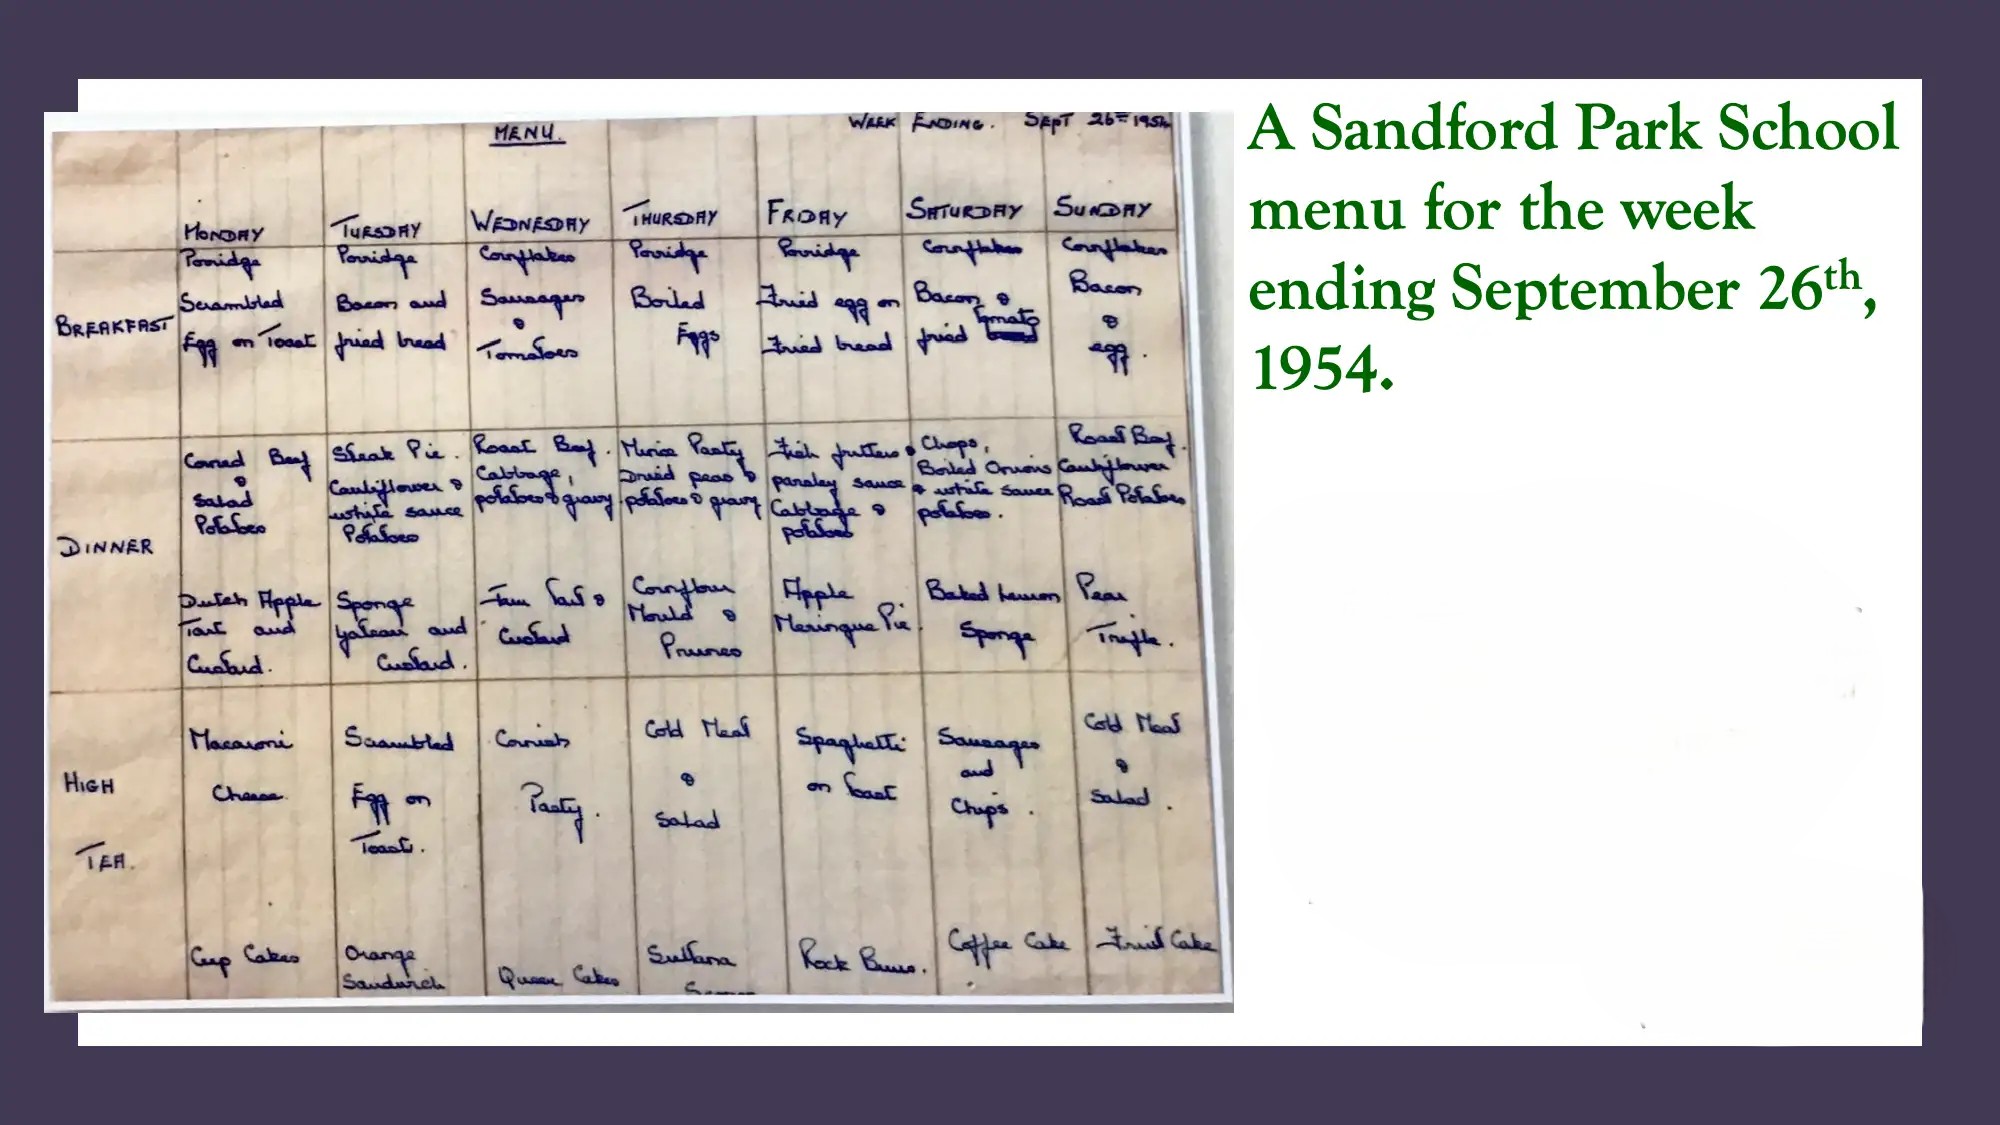 MENU.
WEEK ENDING. SEPT 26TH 1954
MONDAY TUESDAY WEDNESDAY THURSDAY FRIDAY SATURDAY SUNDAY
BREAKFAST
Porridge
Scrambled
Egg on Toast
Porridge
Bacon and
fried bread
Cornflakes
Sausages
&
Tomatoes
Porridge
Boiled
Eggs
Porridge
Fried egg on
Fried bread
Cornflakes
Bacon &
fried Tomato
Cornflakes
Bacon
&
egg.
DINNER
Corned Beef
&
Salad
Potatoes
Dutch Apple
Tart and
Custard.
Steak Pie.
Cauliflower &
white sauce
Potatoes
Sponge
Gateau and
Custard.
Roast Beef.
Cabbage,
potatoes & gravy
Jam Tart &
Custard
Mince Pasty
Dried peas &
potatoes & gravy
Cornflour
Mould &
Prunes
Fish fritters &
parsley sauce
Cabbage &
potatoes
Apple
Meringue Pie.
Chops,
Boiled Onions
& white sauce
potatoes.
Baked Lemon
Sponge
Roast Beef.
Cauliflower
Roast Potatoes
Pear
Trifle.
HIGH
TEA.
Macaroni
Cheese
Cup Cakes
Scrambled
Egg on
Toast.
Orange
Sandwich
Cornish
Pasty.
Queen Cakes
Cold Meat
&
Salad
Sultana
Spaghetti
on toast
Rock Buns.
Sausages
and
Chips.
Coffee Cake
Cold Meat
&
Salad.
Fruit Cake
A Sandford Park School
menu for the week
ending September 26th,
1954.